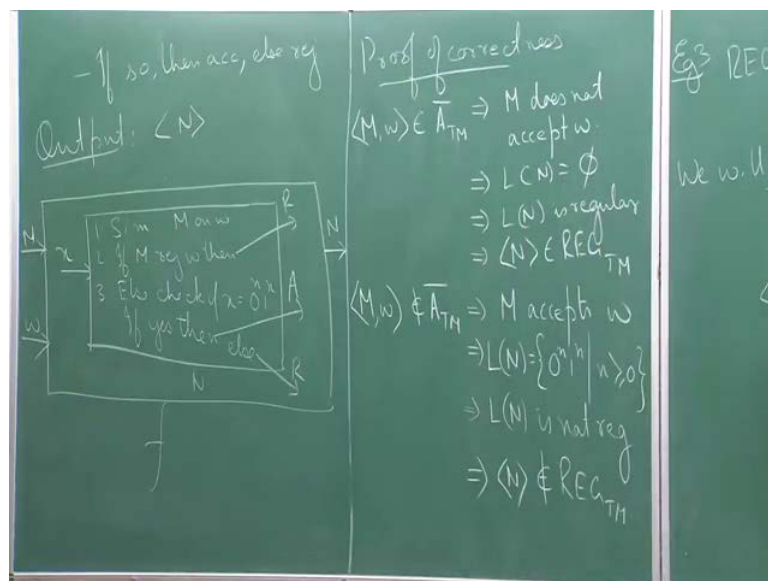 - If so, then acc, else rej
Output: ⟨N⟩
M
w
x
1. Sim M on w
2. If M rej w then
3. Else check if x = 0ⁿ1ⁿ
If yes then else
R
A
R
N
N
f
Proof of correctness
⟨M, w⟩ ∈ A̅_TM ⇒ M does not
accept w.
⇒ L(N) = ∅
⇒ L(N) is regular
⇒ ⟨N⟩ ∈ REG_TM
⟨M, w⟩ ∉ A̅_TM ⇒ M accepts w
⇒ L(N) = {0ⁿ1ⁿ | n ≥ 0}
⇒ L(N) is not reg
⇒ ⟨N⟩ ∉ REG_TM
Eg 3 REG
We will